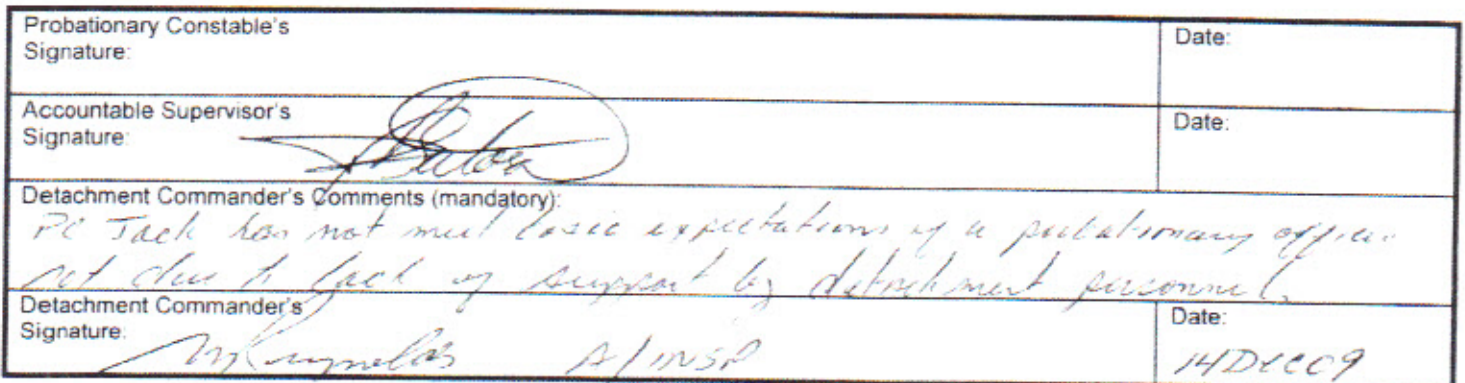 Probationary Constable's
Signature:
Date:
Accountable Supervisor's
Signature:
Date:
Detachment Commander's Comments (mandatory):
PC Jack has not met basic expectations of a probationary officer
not due to lack of support by detachment personnel.
Detachment Commander's
Signature:
Date:
A/INSP
14DEC09